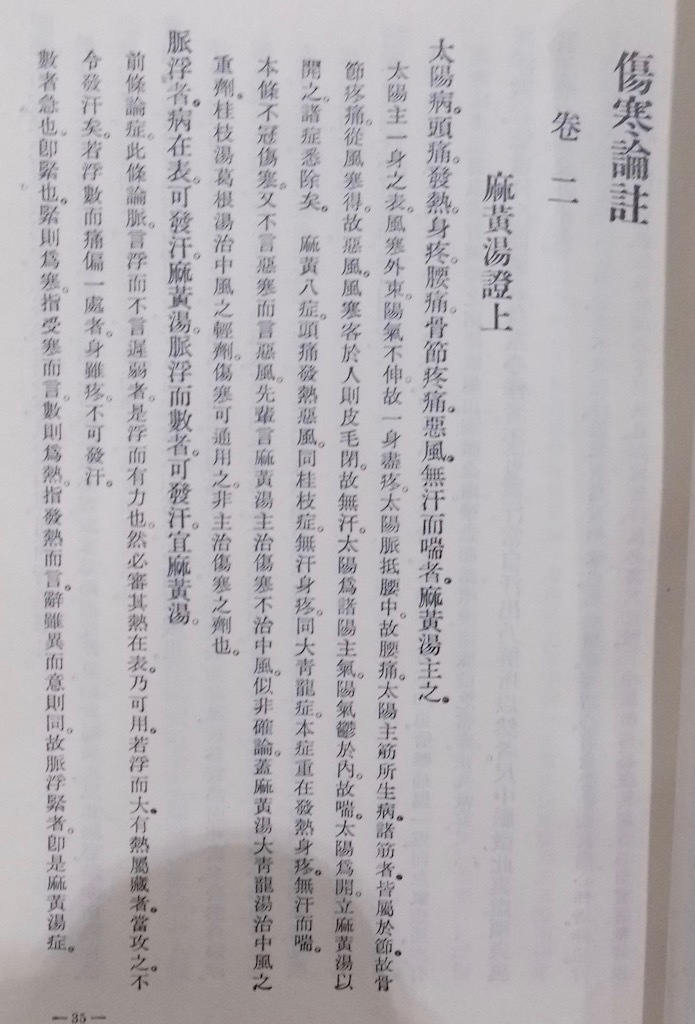 傷寒論註
卷二
麻黃湯證上
太陽病。頭痛。發熱。身疼。腰痛。骨節疼痛。惡風。無汗而喘者。麻黃湯主之。
太陽主一身之表。風寒外束。陽氣不伸。故一身盡疼。太陽脈抵腰中。故腰痛。太陽主筋所生病。諸筋者。皆屬於節。故骨
節疼痛。從風寒得。故惡風。風寒客於人則皮毛閉。故無汗。太陽為諸陽主氣。陽氣鬱於內。故喘。太陽為開。立麻黃湯以
開之。諸症悉除矣。 麻黃八症。頭痛發熱惡風。同桂枝症。無汗身疼。同大青龍症。本症重在發熱身疼。無汗而喘。
本條不冠傷寒。又不言惡寒而言惡風。先輩言麻黃湯主治傷寒不治中風。似非確論。蓋麻黃湯大青龍湯治中風之
重劑。桂枝湯葛根湯治中風之輕劑。傷寒可通用之。非主治傷寒之劑也。
脈浮者。病在表。可發汗。麻黃湯。脈浮而數者。可發汗。宜麻黃湯。
前條論症。此條論脈。言浮而不言遲弱者。是浮而有力也。然必審其熱在表。乃可用。若浮而大。有熱屬藏者。當攻之。不
令發汗矣。若浮數而痛偏一處者。身雖疼。不可發汗。
數者急也。卽緊也。緊則為寒。指受寒而言。數則為熱。指發熱而言。辭雖異而意則同。故脈浮緊者。卽是麻黃湯症。
—35—